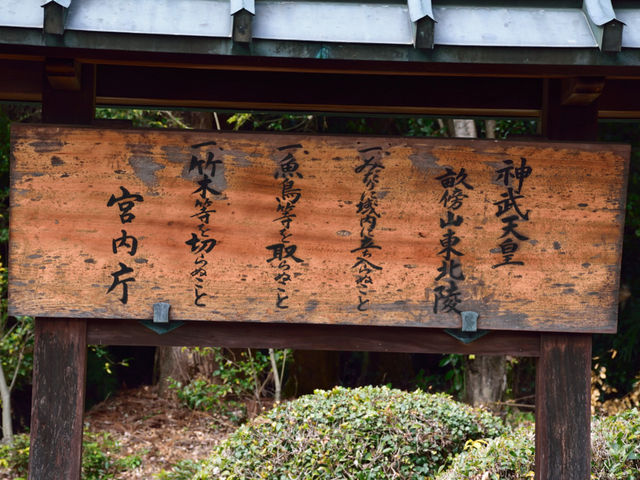 神武天皇
畝傍山東北陵
一みだりに域内に立ち入らぬこと
一魚鳥等を取らぬこと
一竹木等を切らぬこと
宮内庁